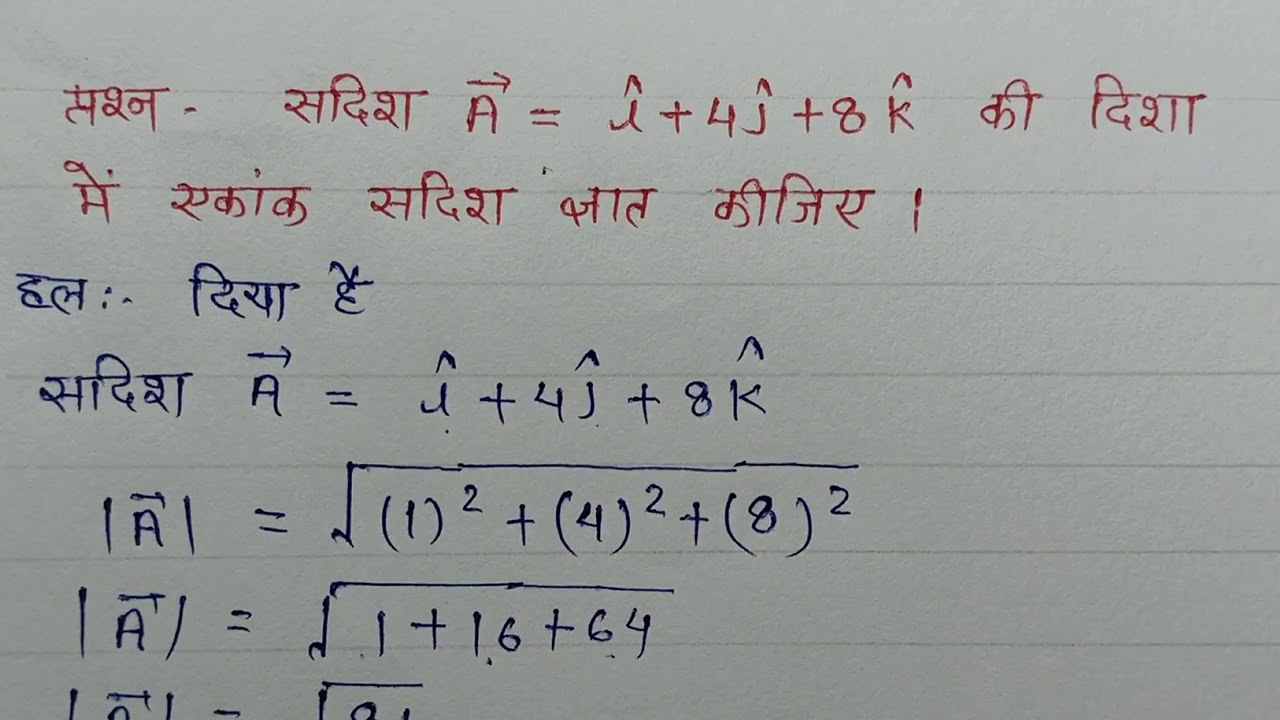 प्रश्न - सदिश A⃗ = î + 4ĵ + 8k̂ की दिशा
में एकांक सदिश ज्ञात कीजिए ।
हल :- दिया है
सदिश A⃗ = î + 4ĵ + 8k̂
|A⃗| = √(1)² + (4)² + (8)²
|A⃗| = √1 + 16 + 64
|A⃗| = √81